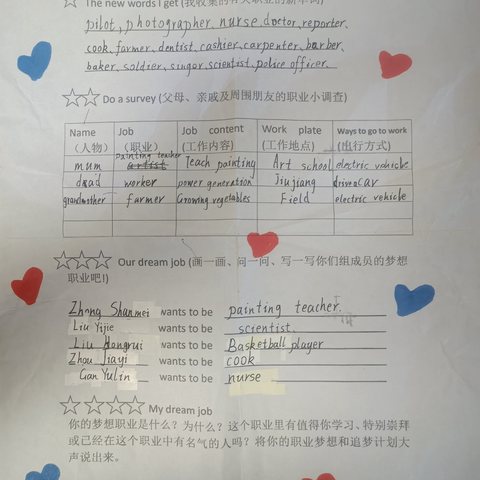 ☆ The new words I get (我收集的有关职业的新单词)
pilot, photographer, nurse, doctor, reporter,
cook, farmer, dentist, cashier, carpenter, barber,
baker, soldier, singer, scientist, police officer.
☆☆ Do a survey (父母、亲戚及周围朋友的职业小调查)
Name Job Job content Work plate Ways to go to work
(人物) (职业) (工作内容) (工作地点) (出行方式)
mum painting teacher Teach painting Art school electric vehicle
dad worker power generation Jiujiang drive a car
grandmother farmer Growing vegetables Field electric vehicle
☆☆☆ Our dream job (画一画、问一问、写一写你们组成员的梦想
职业吧!)
Zhang Shanmei wants to be painting teacher.
Liu Yijie wants to be scientist.
Liu Hongrui wants to be Basketball player
Zhou Jiayi wants to be cook
Gan Yulin wants to be nurse
☆ ☆ ☆ ☆ My dream job
你的梦想职业是什么？为什么？这个职业里有值得你学习、特别崇拜
或已经在这个职业中有名气的人吗？将你的职业梦想和追梦计划大
声说出来。